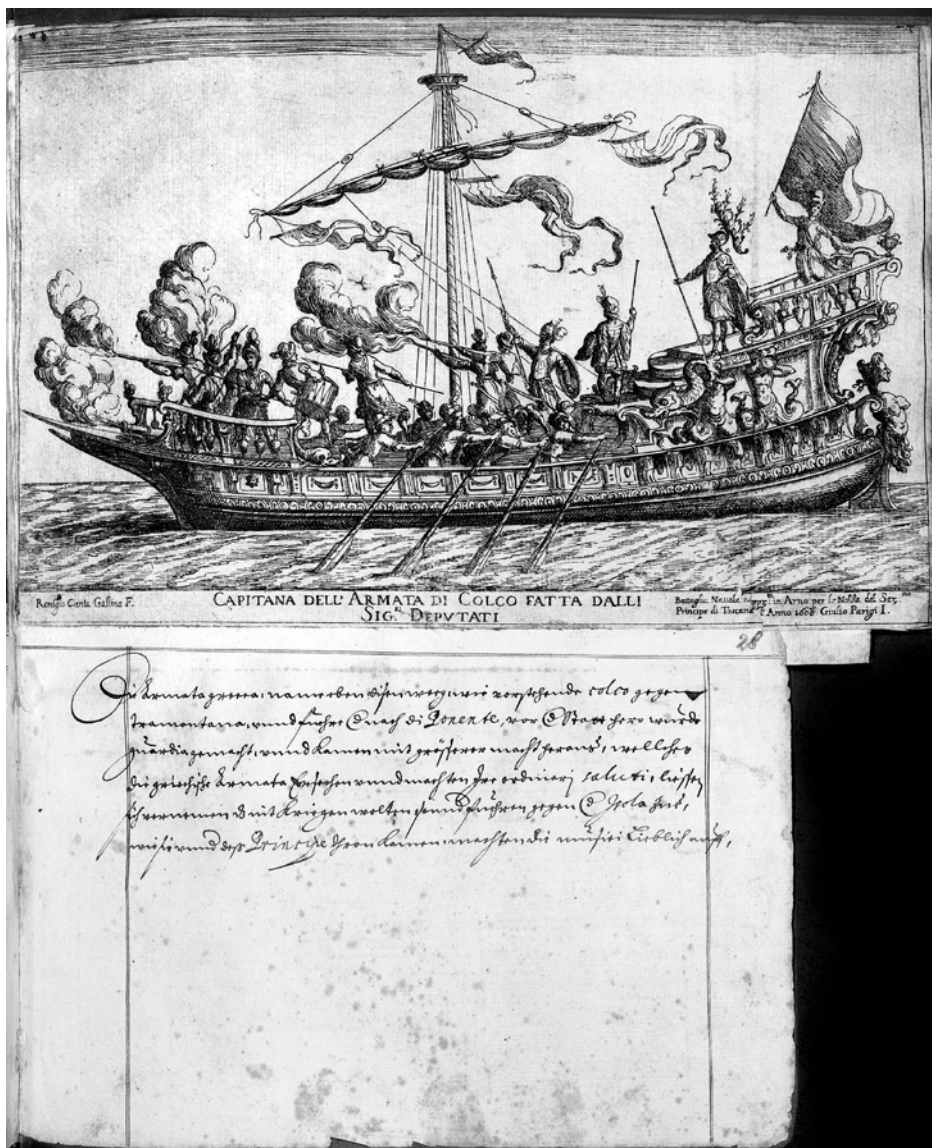 Remigio Canta Gallina F.
CAPITANA DELL' ARMATA DI COLCO FATTA DALLI
SIG.ri DEPVTATI
Battaglia Nauale rapp.ta in Arno per le Nozze del Ser.mo
Principe di Toscana l'Anno 1608 Giulio Parigi I.
28
Die Armata greeca, name eben disen weeg, wie vorstehende colco gegen
tramontana, vnnd fuehre nach di Ponente, vor Statt hero wurde
guardia gemacht, vnnd kamen mit grösserer macht heraus, wellches
die griechische Armata vnnd machten Ire ordinarj saluti, liessen
sich vernemen kriegen wolten vnnd fuehren gegen Isola zue,
wie sie vmb dess Principe thron kamen, machten die music lieblich auff,